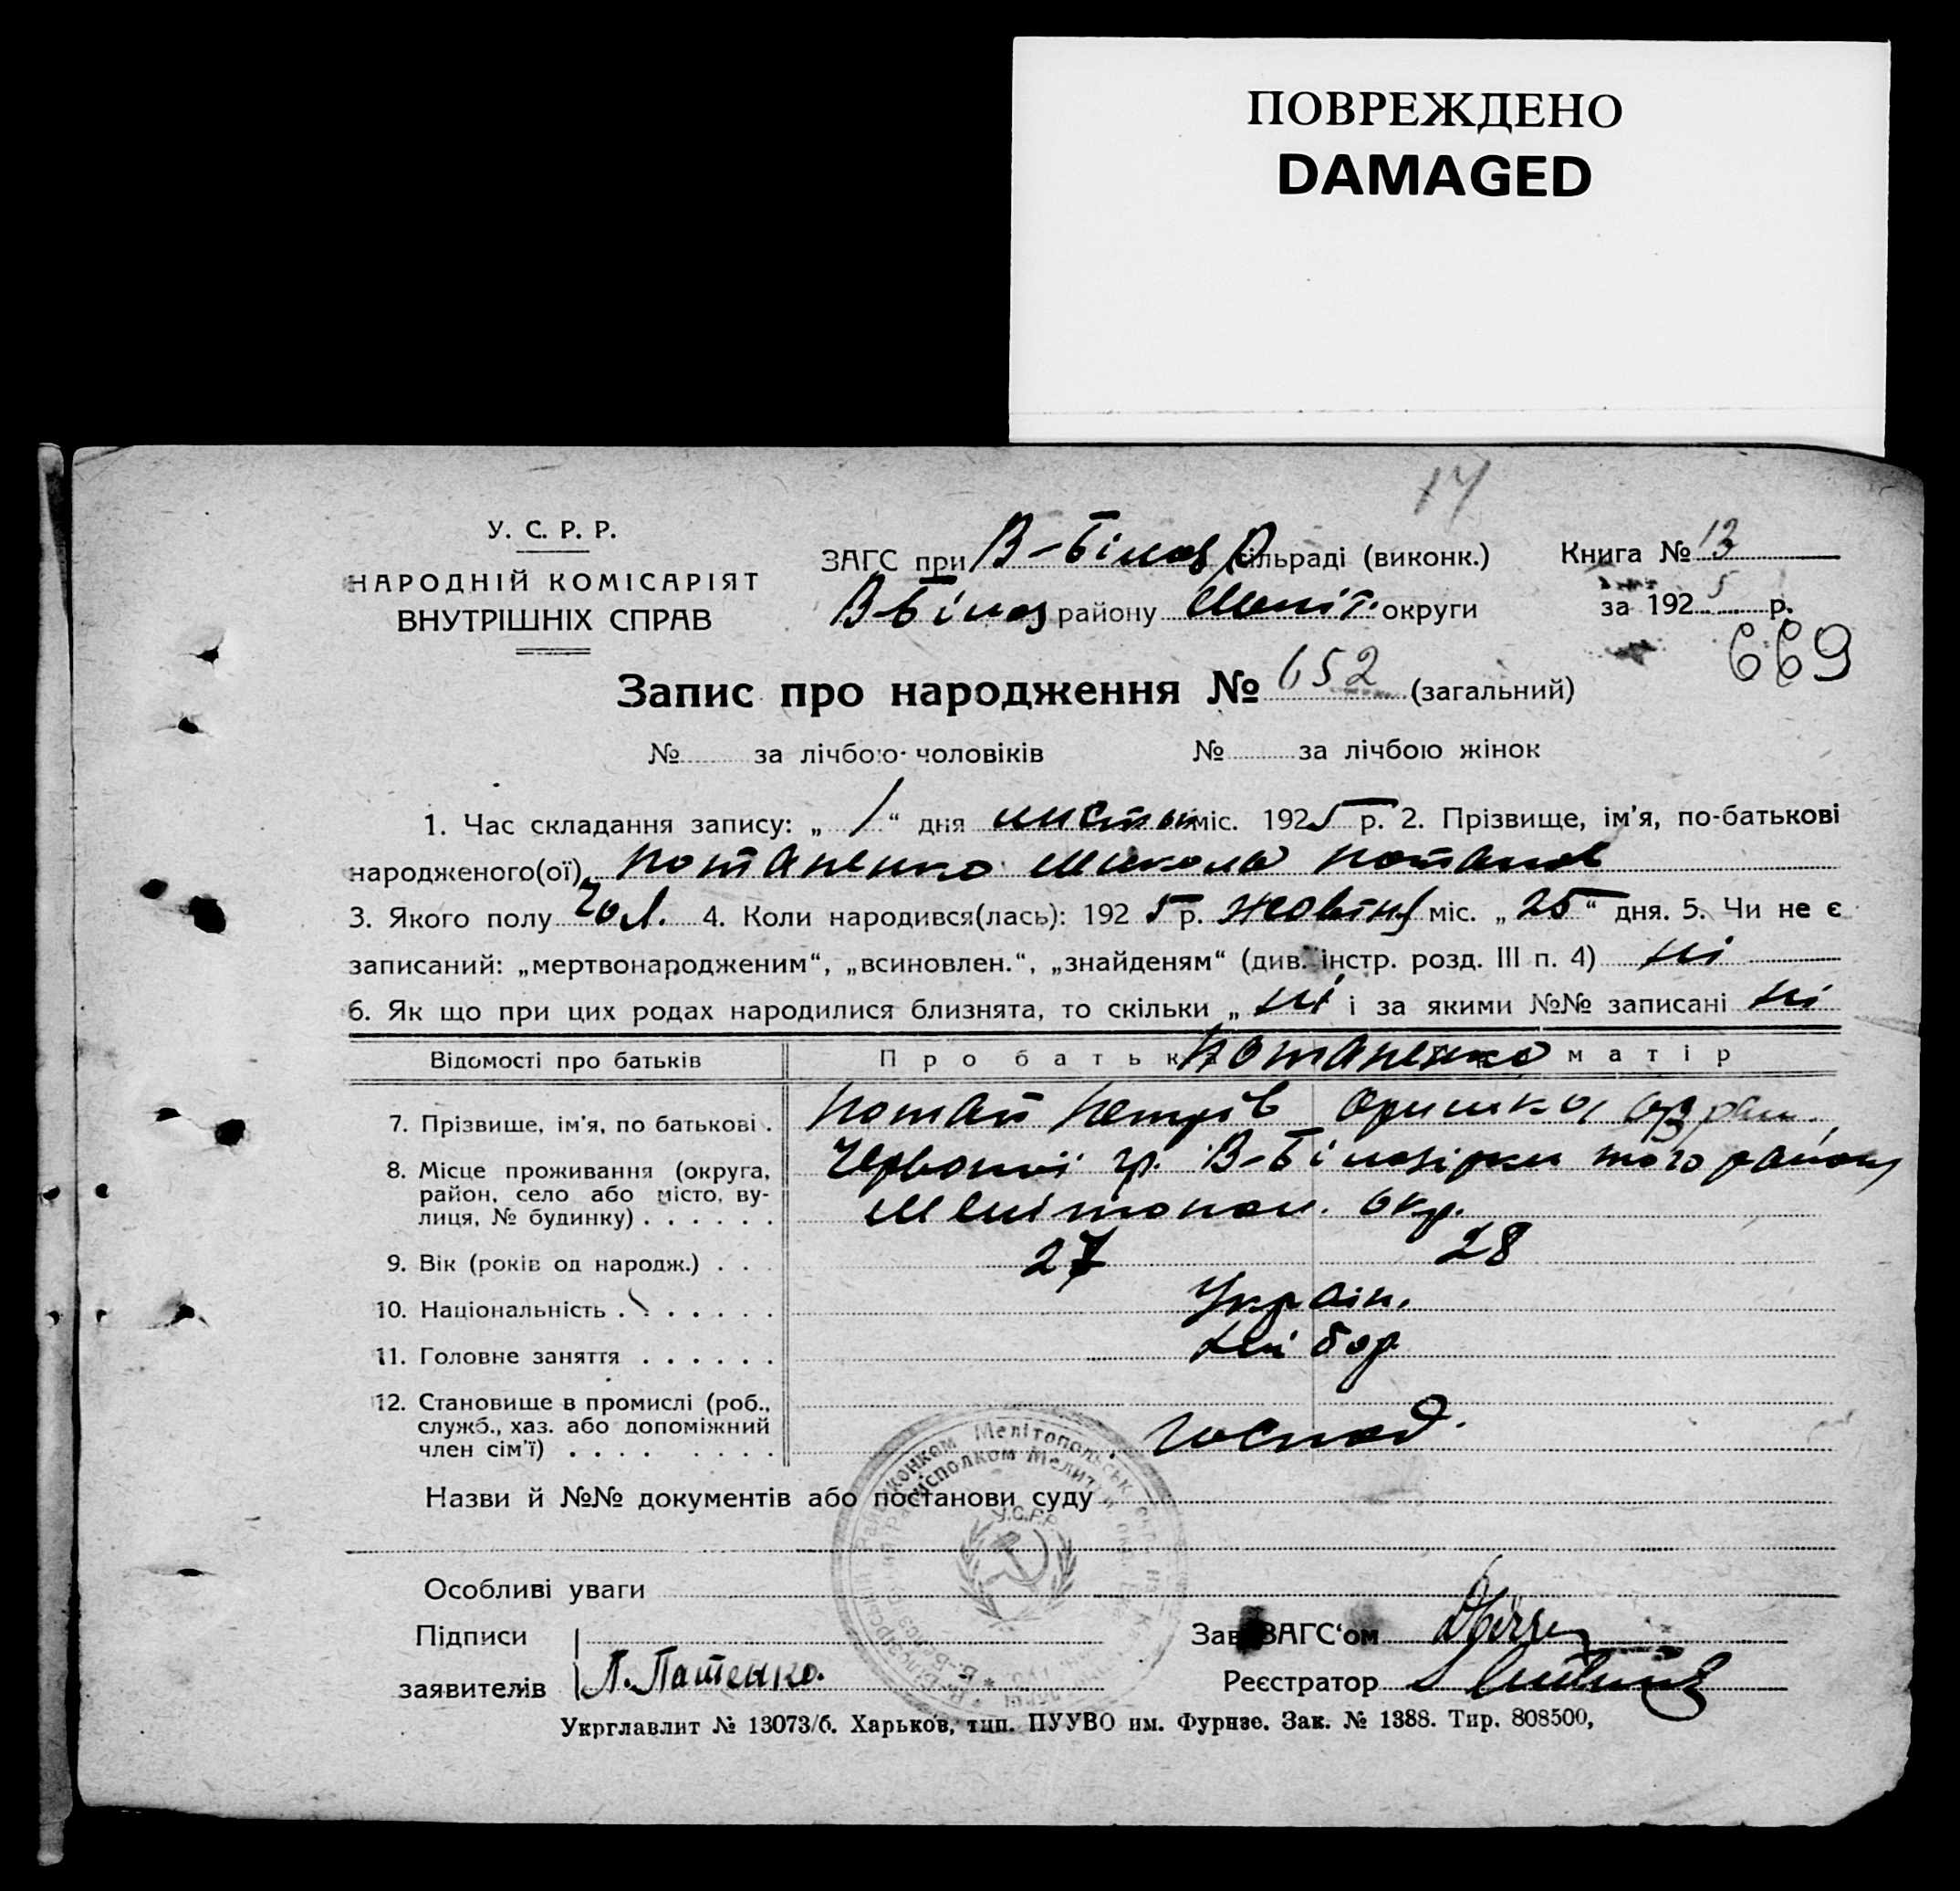 ПОВРЕЖДЕНО
DAMAGED
17
У. С. Р. Р.
НАРОДНІЙ КОМІСАРІЯТ
ВНУТРІШНІХ СПРАВ
ЗАГС при В-Білоз сільраді (виконк.)
В-Білоз району Меліт. округи
Книга № 13
за 1925 р.
669
Запис про народження № 652 (загальний)
№ за лічбою чоловіків № за лічбою жінок
1. Час складання запису: „ 1 “ дня листоп міс. 1925 р. 2. Прізвище, ім'я, по-батькові
народженого(ої) Потапенко Микола Потапов
3. Якого полу чол. 4. Коли народився(лась): 1925 р. жовтн міс. „ 25 “ дня. 5. Чи не є
записаний: „мертвонародженим“, „всиновлен.“, „знайденям“ (див. інстр. розд. III п. 4) ні
6. Як що при цих родах народилися близнята, то скільки „ ні і за якими №№ записані ні
Відомості про батьків Про батьк Потапенко матір
7. Прізвище, ім'я, по батькові . Потап Петрів Оришка
8. Місце проживання (округа, район, село або місто, вулиця, № будинку) . . . . . . Червоної гр. В-Білозірки того району
Мелітопол. окр.
9. Вік (років од народж.) . . . 27 28
10. Національність . . . . . . Україн.
11. Головне заняття . . . . . . хлібор
12. Становище в промислі (роб., служб., хаз. або допоміжний член сім'ї) . . . . . . . . . господ.
Назви й №№ документів або постанови суду
Особливі уваги
Підписи
заявителів П. Патенко.
Зав. ЗАГС‘ом
Реєстратор
У.С.Р.Р.
Укрглавлит № 13073/б. Харьков, тип. ПУУВО им. Фурнзе. Зак. № 1388. Тир. 808500,